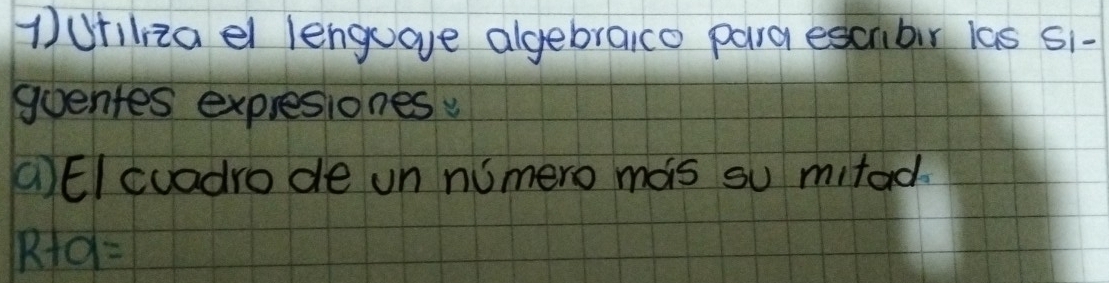 1) Utiliza el lenguaje algebraico para escribir las si-
guentes expresiones:
a) El cuadro de un número más su mitad.
R+a=